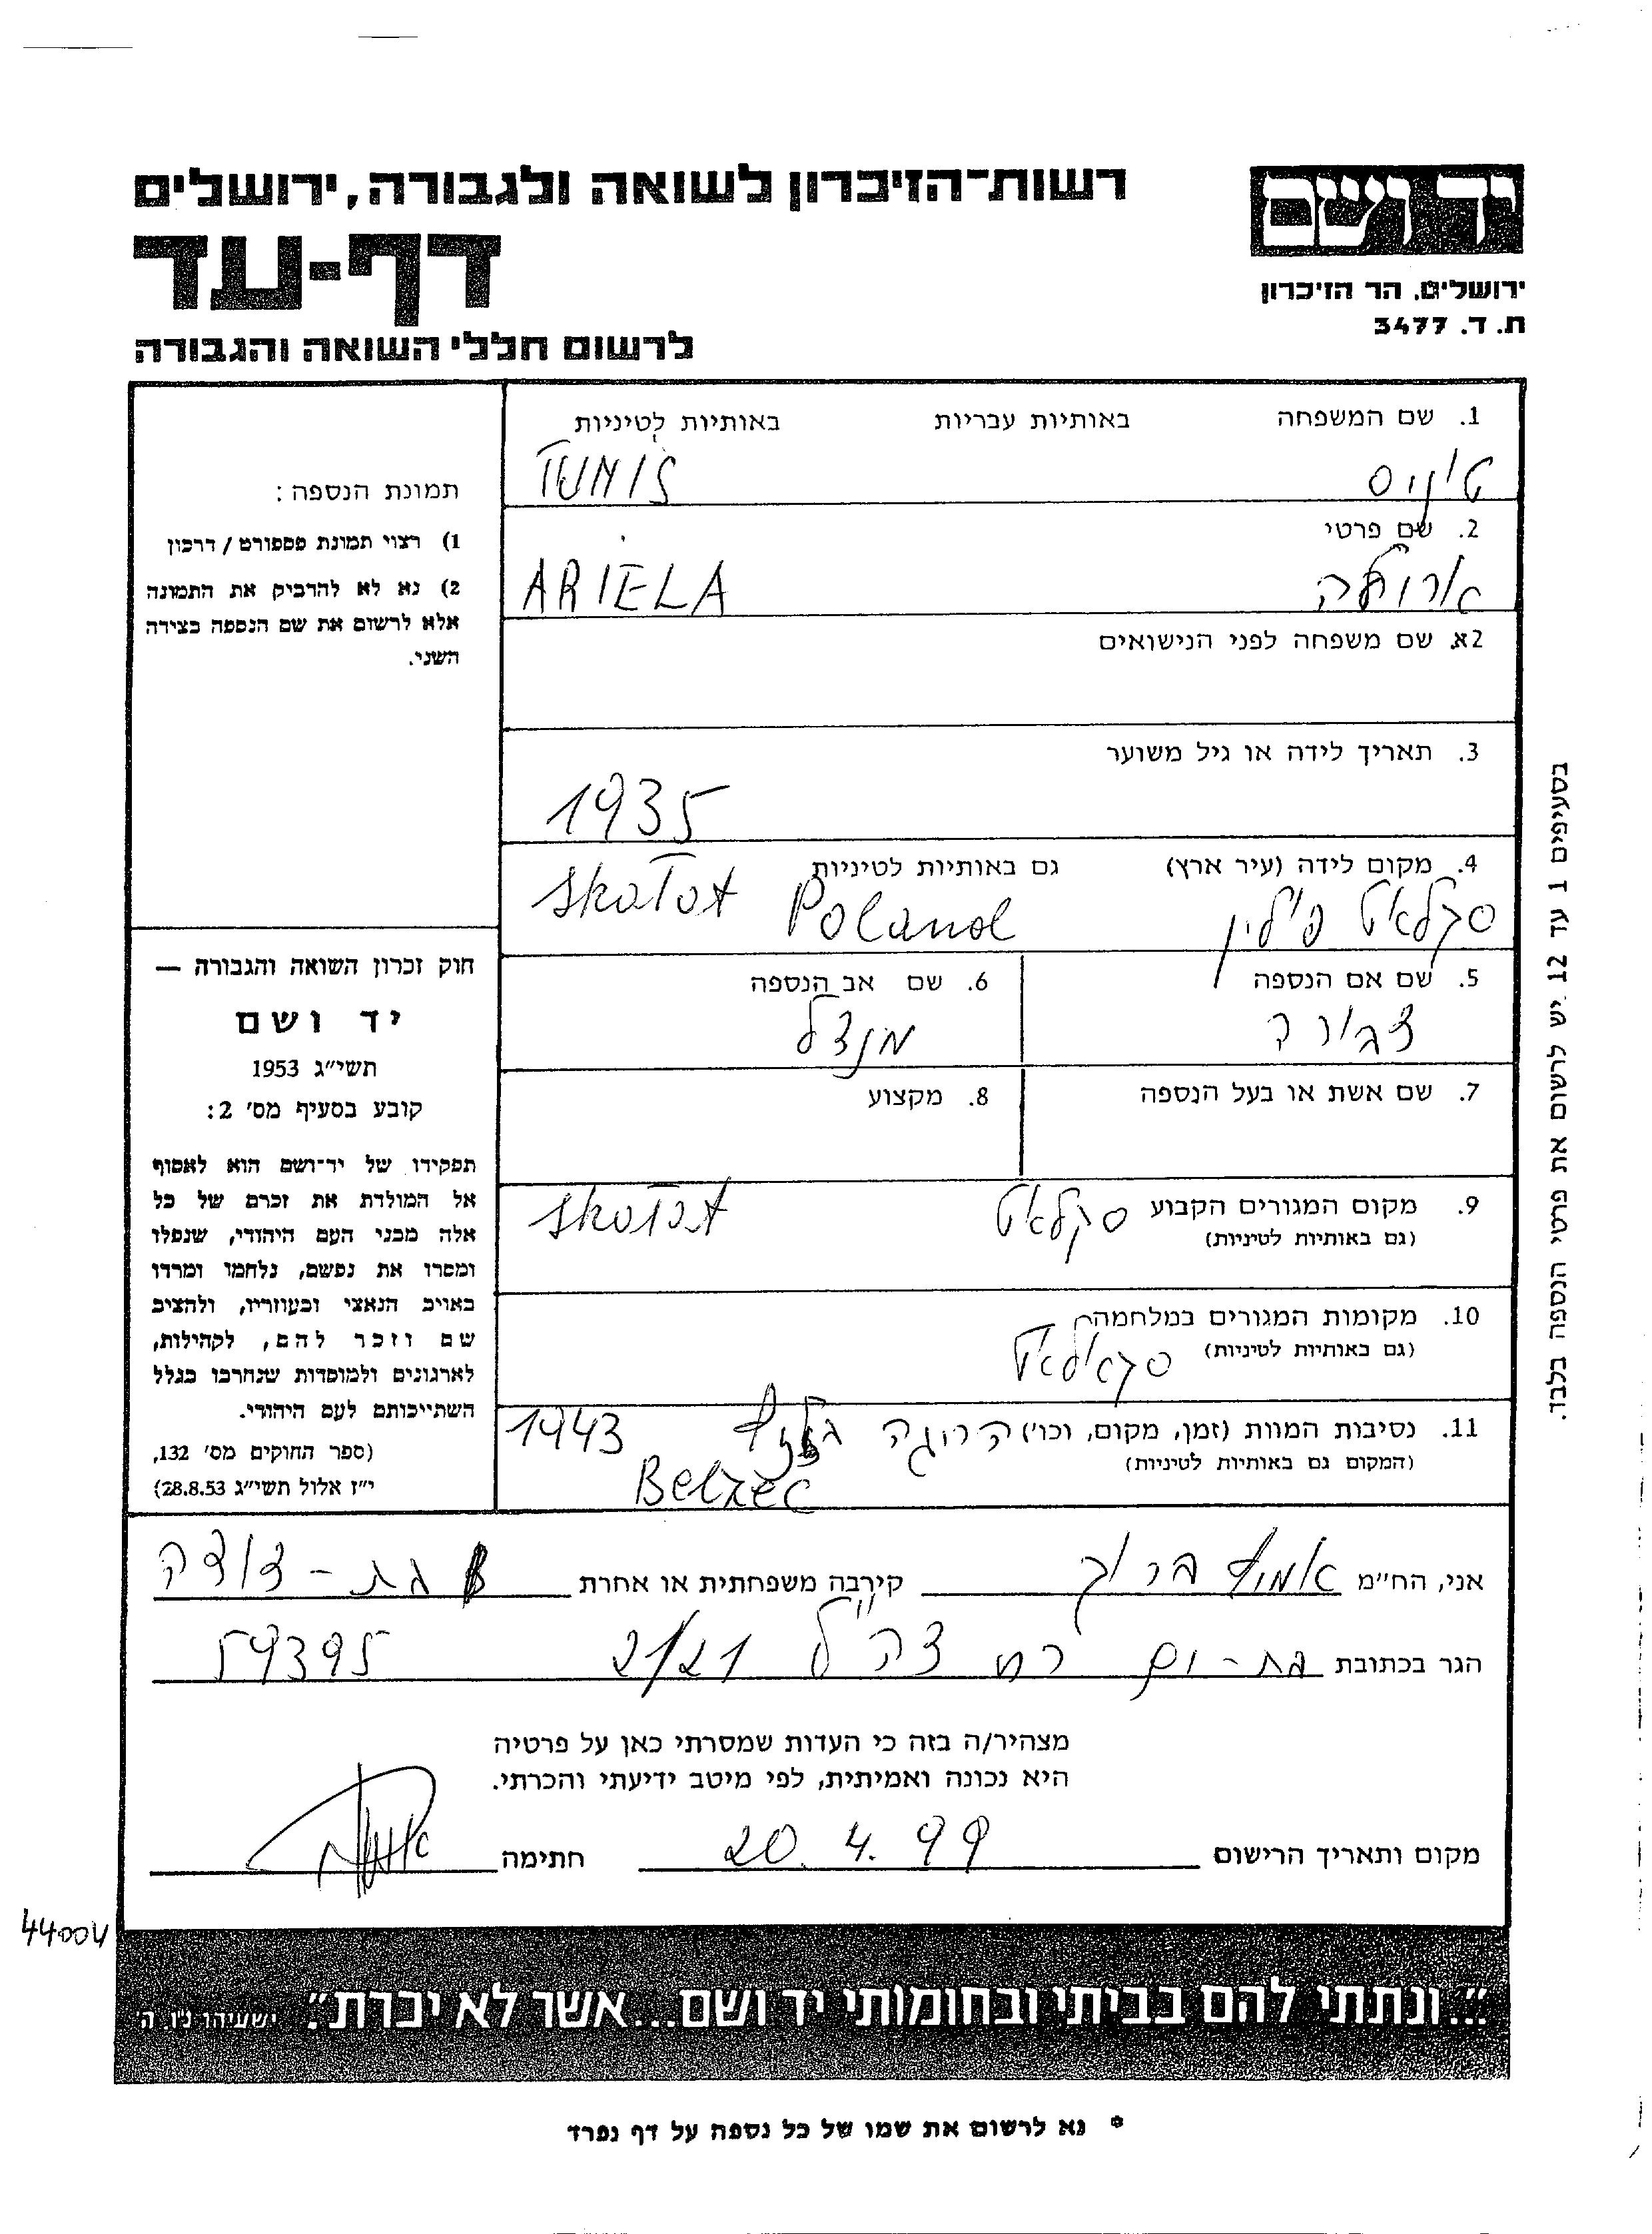 רשות-הזיכרון לשואה ולגבורה, ירושלים
דף-עד
לרשום חללי השואה והגבורה
יד ושם
ירושלים. הר הזיכרון
ת. ד. 3477
1. שם המשפחה באותיות עבריות באותיות לטיניות
טוניס TUNIS
2. שם פרטי
אריאלה ARIELA
2א. שם משפחה לפני הנישואים
3. תאריך לידה או גיל משוער
1935
4. מקום לידה (עיר ארץ) גם באותיות לטיניות
סקלאט פולין Poland Skałat
5. שם אם הנספה
צפורה
6. שם אב הנספה
מנדל
7. שם אשת או בעל הנספה
8. מקצוע
9. מקום המגורים הקבוע סקלאט Skałat
(גם באותיות לטיניות)
10. מקומות המגורים במלחמה
(גם באותיות לטיניות) סקאלאט
11. נסיבות המוות (זמן, מקום, וכו') הרוגה 1943
(המקום גם באותיות לטיניות) Bełzec
תמונת הנספה:
1) רצוי תמונת פספורט / דרכון
2) נא לא להדביק את התמונה
אלא לרשום את שם הנספה בצידה
השני.
חוק זכרון השואה והגבורה —
יד ושם
תשי"ג 1953
קובע בסעיף מס' 2:
תפקידו של יד-ושם הוא לאסוף
אל המולדת את זכרם של כל
אלה מבני העם היהודי, שנפלו
ומסרו את נפשם, נלחמו ומרדו
באויב הנאצי ובעוזריו, ולהציב
שם וזכר להם, לקהילות,
לארגונים ולמוסדות שנחרבו בגלל
השתייכותם לעם היהודי.
(ספר החוקים מס' 132,
י"ז אלול תשי"ג 28.8.53)
בסעיפים 1 עד 12 יש לרשום את פרטי הנספה בלבד.
אני, הח"מ ברוך קירבה משפחתית או אחרת בת-דודה
הגר בכתובת בת-ים רח צה"ל 2/21 59395
מצהיר/ה בזה כי העדות שמסרתי כאן על פרטיה
היא נכונה ואמיתית, לפי מיטב ידיעתי והכרתי.
מקום ותאריך הרישום 20.4.99 חתימה
44004
"...ונתתי להם בביתי ובחומותי יד ושם...אשר לא יכרת". ישעיהו נ"ו, ה'
* נא לרשום את שמו של כל נספה על דף נפרד